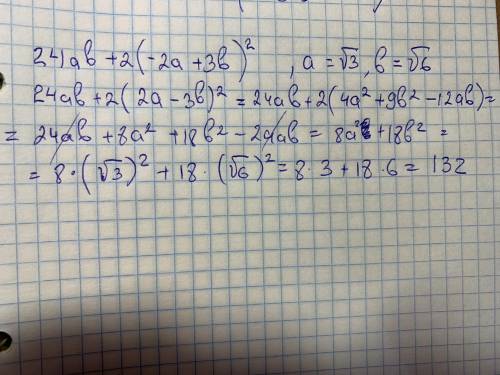 24ab + 2(-2a + 3b)², a = √3, b = √6
24ab + 2(2a - 3b)² = 24ab + 2(4a² + 9b² - 12ab) =
= 24ab + 8a² + 18b² - 24ab = 8a² + 18b² =
= 8 · (√3)² + 18 · (√6)² = 8 · 3 + 18 · 6 = 132